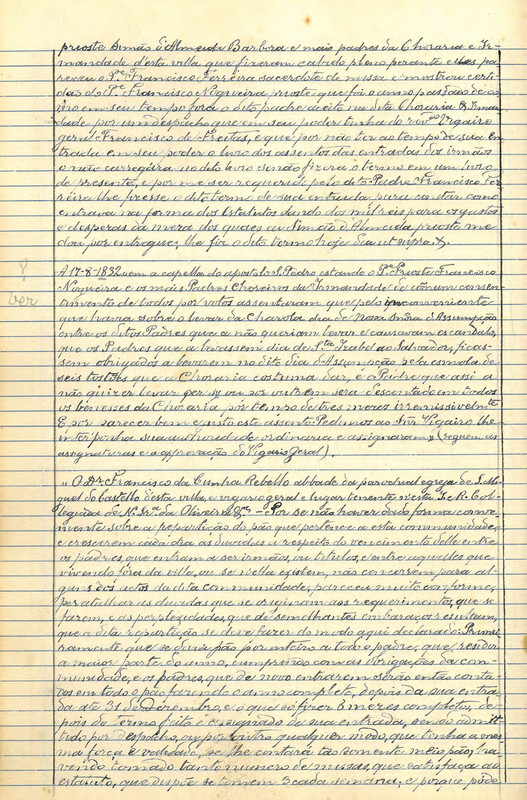 prioste Simão d'Almeida Barbosa e mais padres da Choraria e Ir-
mandade d'esta villa que fizeram cabido pleno perante elles pa-
receu o Pe Francisco Ferreira sacerdote de missa e mostrou certi-
dão do Pe Francisco Nogueira prioste que foi o anno passado de co-
mo em seu tempo fora o dito padre aceite na dita Choraria & Irman-
dade por um despacho que em seu poder tenha do revmo Vigairo
geral Francisco de Freitas, e que por não ter ao tempo de sua en-
trada em seu poder o livro dos assentos das entradas dos irmãos
o não carregára no dito livro senão fizera o termo em um livro
de presente, e por me ser requerido pelo dito Padre Francisco Fer-
reira lhe fizesse o dito termo de sua entrada para constar como
entrava na forma dos Estatutos dando dos mil reis para os gastos
e despezas da meza dos quaes eu Simão d'Almeida prioste me
dou por entregue, lhe fiz o dito termo hoje dia ut supra &.
?
ver
A 17-8-1832 "em a capella do apostolo S. Pedro estando o Pe Prioste Francisco
Nogueira e os mais Padres Choreiros da Irmandade de comum consen-
timento de todos por votos assentaram que pelo inconveniente
que havia sobre o levar da Charola dia de Nossa Senhra d'Assumpção
entre os ditos Padres que a não queriam levar e causavam escandulo,
que os Padres que a levassem dia de Sta Izabel ao Salvador, ficas-
sem obrigados a levarem no dito dia d'Assumpção pela esmola de
seis tostões que a Choraria costuma dar, e o Padre que assi a
não quizer levar per sy ou por outrem sera descontado em todos
os benesses da Choraria por tempo de tres mezes irremissivelmte
E por parecer bem e justo este assento Pedimos ao Snr Vigairo lhe
interponha sua authoridade ordinaria e assignaram" (seguem as
assignaturas e a approvação do Vigario Geral).
"O Dr. Francisco da Cunha Rebello abbade da parochial egreja de S. Mi-
guel do Castello desta villa, vigario geral e lugar tenente nesta I. e R. Col-
legiada de N. Sra da Oliveira &ca — Por se não haver dado forma conve-
niente sobre a repartição do pão que pertence a esta communidade,
e crescerem cada dia as duvidas a respeito do vencimento delle entre
os padres, que entram a ser irmãos, ou titulos, e entre aquelles que
vivendo fóra da villa, ou se nella existem, não concorrem para al-
guns dos actos da dita communidade, pareceu muito conforme,
para atalhar as duvidas que se originam aos requerimentos, que se
fazem, e as perplexidades, que de semelhantes embaraços resultam,
que a dita repartição se devia fazer do modo aqui declarado: Primei-
ramente que se dará pão por inteiro a todo o padre, que residir
a maior parte do anno, cumprindo com as obrigações da com-
munidade, e os padres, que de novo entrarem serão então conta-
dos em todo o pão fazendo o anno completo, depois da sua entra-
da até 31 de Dezembro, e o que só fizer 6 mezes completos, de-
pois do termo feito e assignado de sua entrada, sendo admit-
tido por despacho, ou por outro qualquer modo, que tenha a mes-
ma força e validade, se lhe contará tão somente meio pão, ha-
vendo tomado tanto numero de missas, que satisfaça ao
estatuto, que dispõe se tomem 3 cada semana, e porque póde